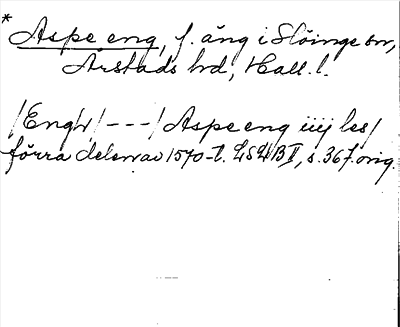 * Aspe eng, f. äng i Slöinge sn,
Årstads hd, Hall. l.
/Engh/ --- / Aspe eng iiij les /
förra delen av 1570-t. LSHB II, s. 367. orig.